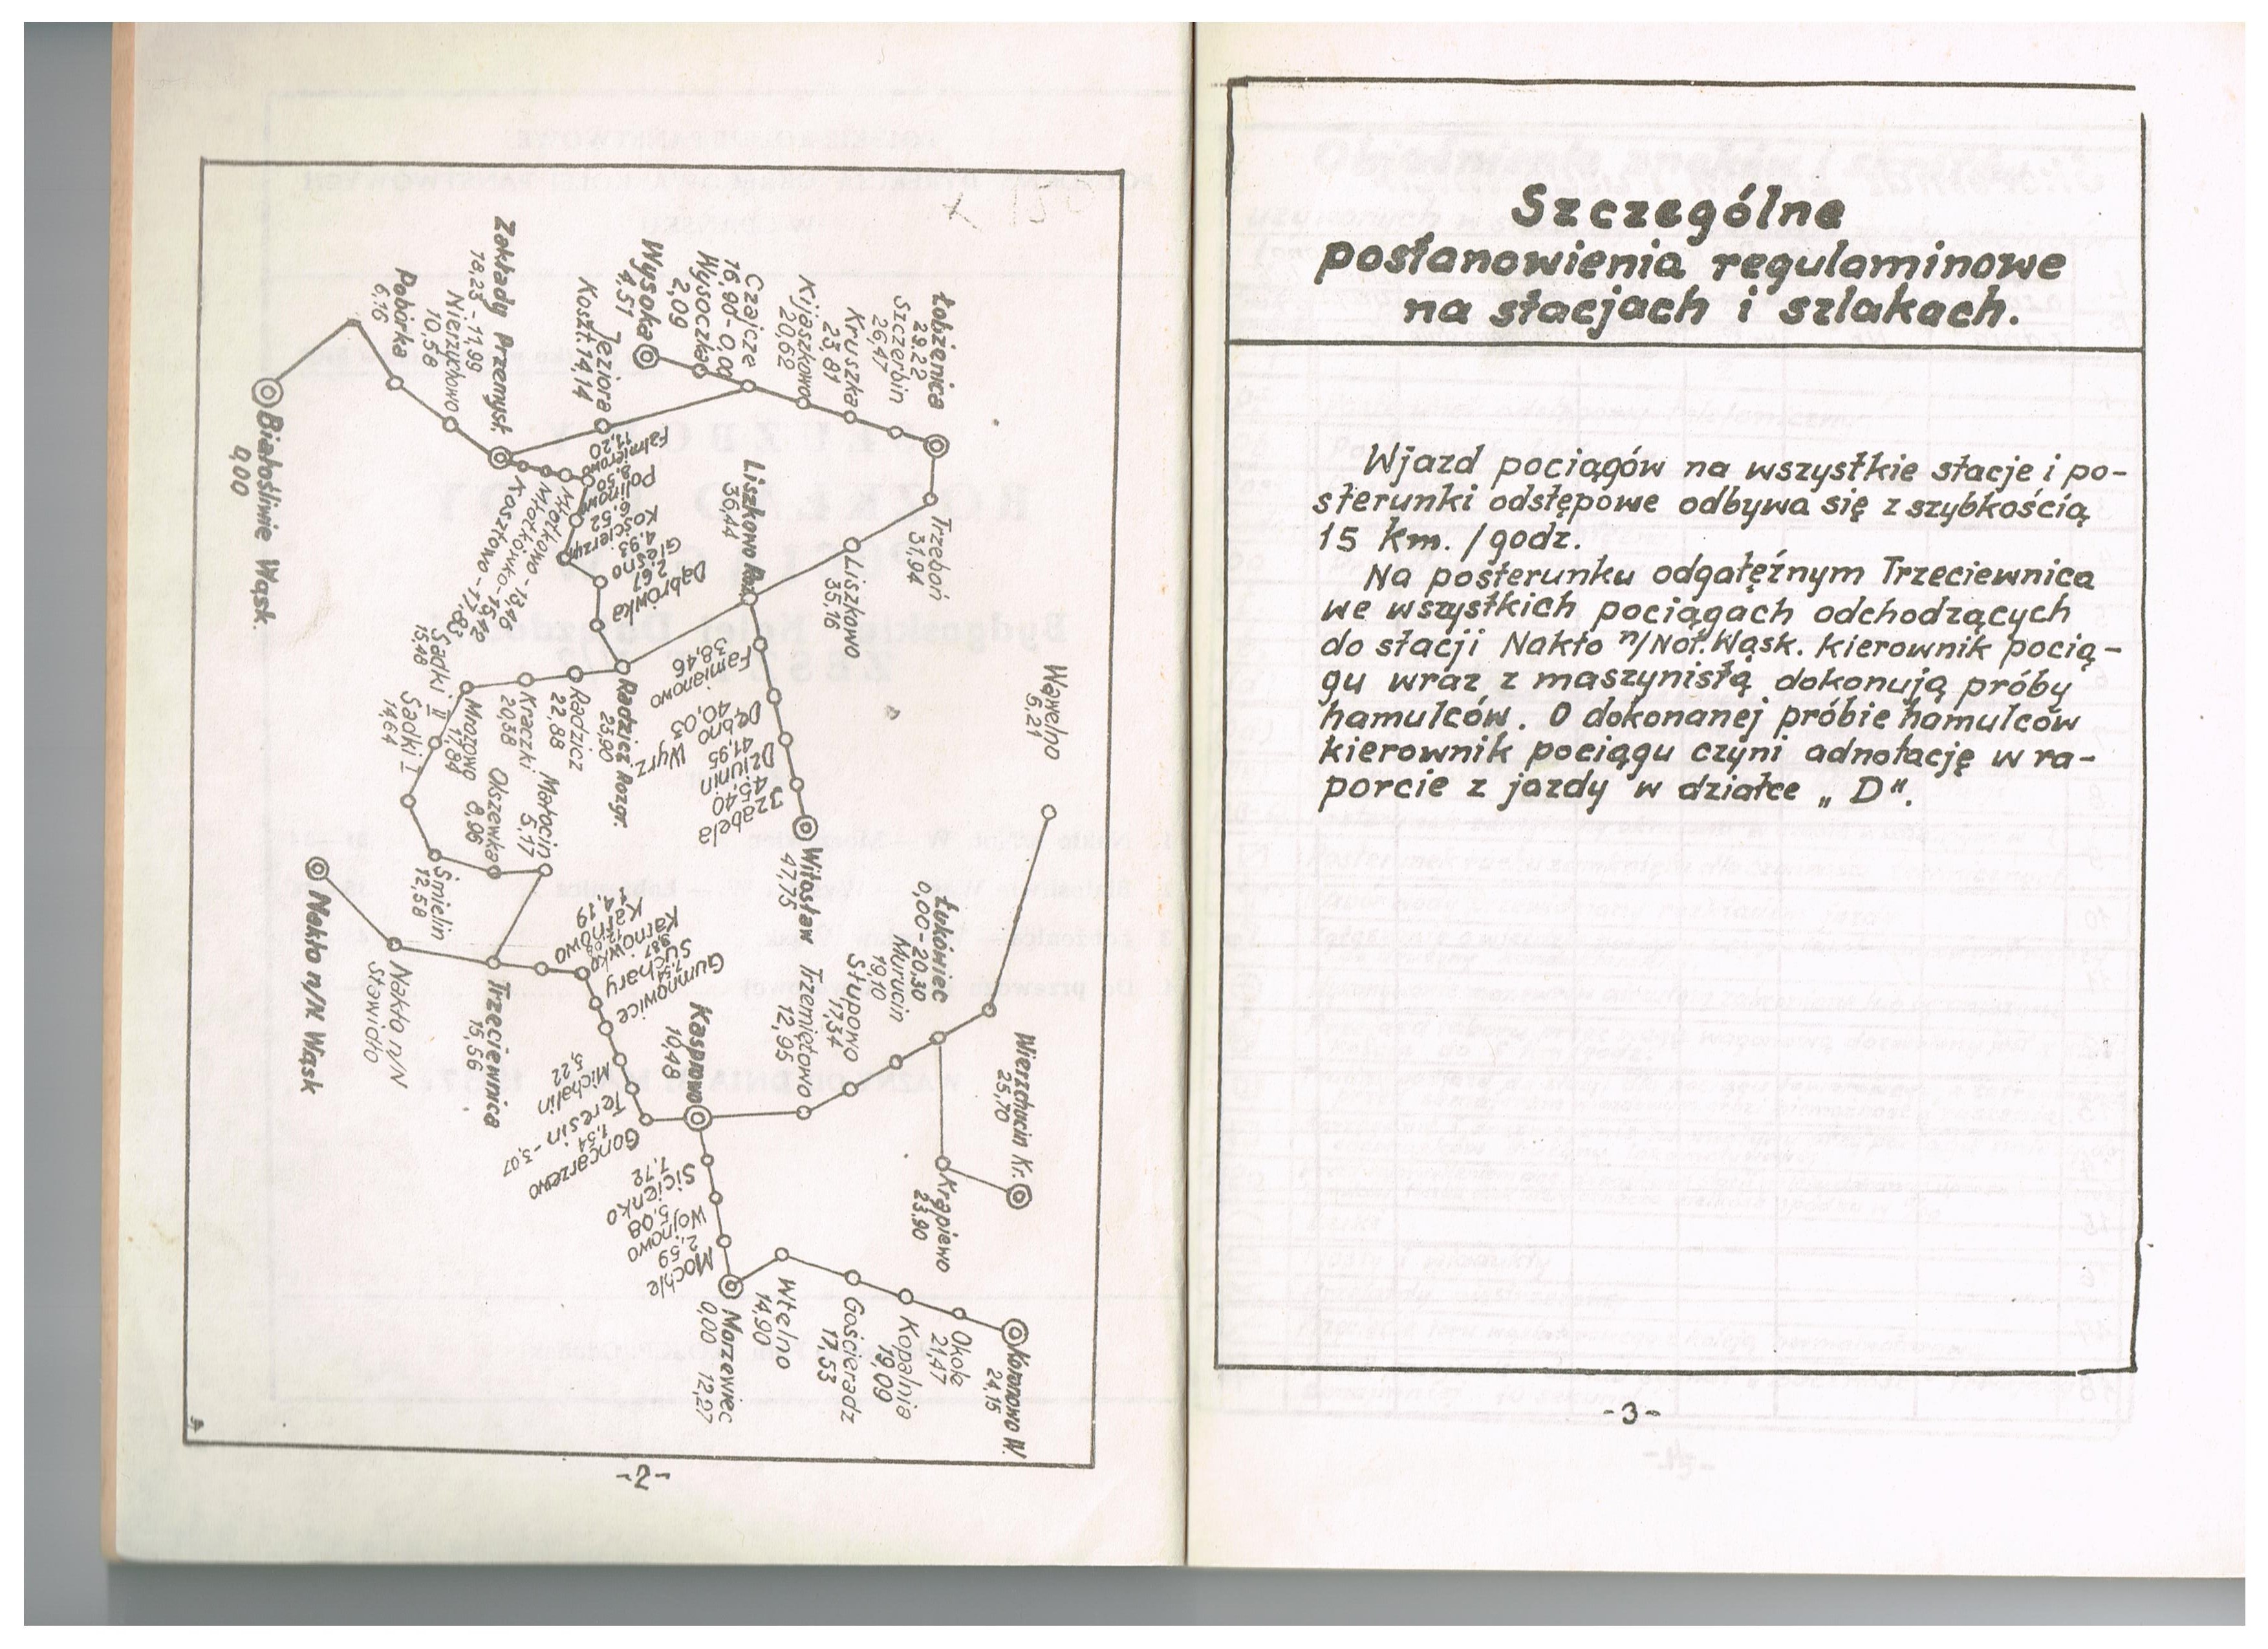 Łobżenica
29.22
Szczerbin
26,47
Kruszka
23,81
Kijaszkowo
20,62
Czajcze
16,90-0,00
Wysoczka
2,09
Wysoka
4,51
Jeziora
Koszt.14,14
Zakłady Przemysł.
18,23-11,99
Nieżuchowo
10,58
Pobórka
6,16
Białośliwie Wąsk.
0,00
Falmierowo
11,20
Polinowo
8,50
Kościerzyn
6,52
Glesno
4,93
Dąbrówka
2,67
Młotkowo-13,46
Młotkówko-15,42
Kosztowo-17,83
Trzeboń
31,94
Liszkowo
35,16
Liszkowo Roz.
36,44
Famianowo
38,46
Dębno Wyrz.
40,03
Dziunin
41,95
Izabela
45,40
Witosław
47,75
Radzicz Rozgr.
23,90
Radzicz
22,88
Kraczki
20,38
Mrozowo
17,84
Sadki II
15,48
Sadki I
14,64
Śmielin
12,58
Olszewka
8,96
Małocin
5,17
Nakło n/N. Wąsk
Nakło n/N
Stawidło
Trzeciewnica
15,56
Karnowo
4,19
Karnówko
Suchary
9,87
Gumnowice
7,54
Michalin
5,22
Teresin-3,07
Gończarzewo
1,54
Kasprowo
10,48
Trzemiętowo
12,95
Słupowo
17,34
Murucin
19,10
Łukówiec
0,00-20,30
Wąwelno
6,21
Wierzchucin Kr.
25,70
Krąpiewo
23,90
Sicienko
7,72
Wojnowo
5,08
Mochle
2,59
Morzewiec
0,00 12,27
Wtelno
14,90
Gościeradz
17,53
Kopalnia
19,09
Okole
21,47
Koronowo W.
24,15
-2-
Szczególne
postanowienia regulaminowe
na stacjach i szlakach.
Wjazd pociągów na wszystkie stacje i po-
sterunki odstępowe odbywa się z szybkością
15 km./godz.
Na posterunku odgałęźnym Trzeciewnica
we wszystkich pociągach odchodzących
do stacji Nakło n/Not.Wąsk. kierownik pocią-
gu wraz z maszynistą dokonują próby
hamulców. O dokonanej próbie hamulców
kierownik pociągu czyni adnotację w ra-
porcie z jazdy w działce „D".
-3-